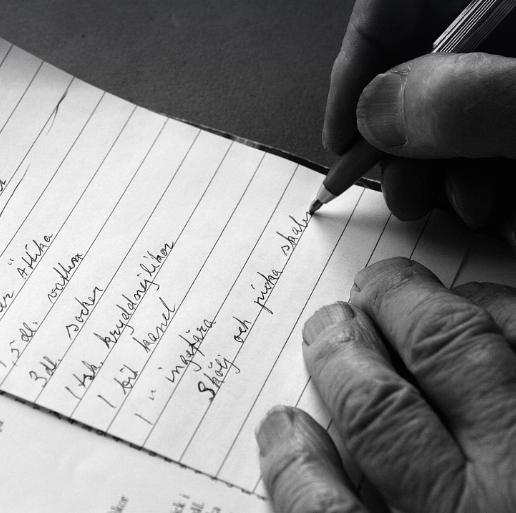 ättika
1,5 dl. vatten
3 dl. socker
1 tsk kryddnejlikor
1 bit kanel
1 " ingefära
Skölj och pricka skalen